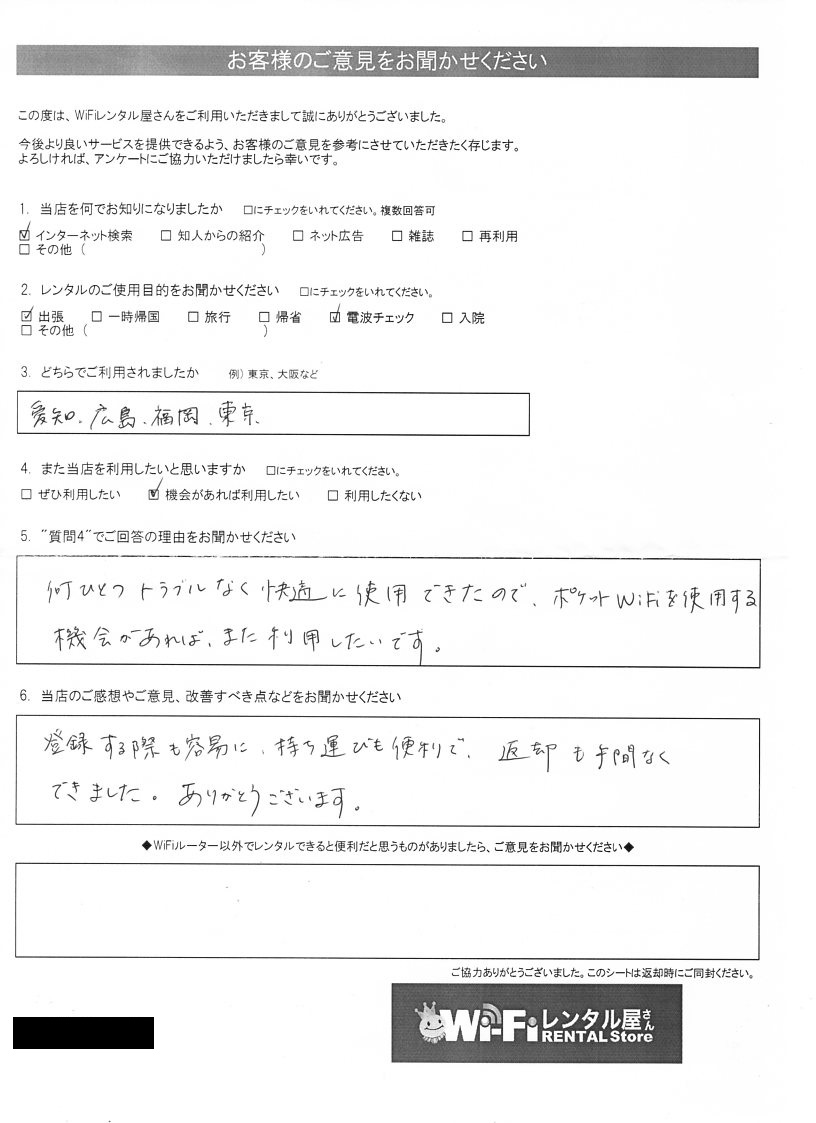 お客様のご意見をお聞かせください
この度は、WiFiレンタル屋さんをご利用いただきまして誠にありがとうございました。
今後より良いサービスを提供できるよう、お客様のご意見を参考にさせていただきたく存じます。
よろしければ、アンケートにご協力いただけましたら幸いです。
1. 当店を何でお知りになりましたか　□にチェックをいれてください。複数回答可
☑ インターネット検索　□ 知人からの紹介　□ ネット広告　□ 雑誌　□ 再利用
□ その他（　　　　　　）
2. レンタルのご使用目的をお聞かせください　□にチェックをいれてください。
☑ 出張　□ 一時帰国　□ 旅行　□ 帰省　☑ 電波チェック　□ 入院
□ その他（　　　　　　）
3. どちらでご利用されましたか　例）東京、大阪など
愛知、広島、福岡、東京
4. また当店を利用したいと思いますか　□にチェックをいれてください。
□ ぜひ利用したい　☑ 機会があれば利用したい　□ 利用したくない
5. "質問4"でご回答の理由をお聞かせください
何ひとつトラブルなく快適に使用できたので、ポケットWiFiを使用する
機会があれば、また利用したいです。
6. 当店のご感想やご意見、改善すべき点などをお聞かせください
登録する際も容易に、持ち運びも便利で、返却も手間なく
できました。ありがとうございます。
◆WiFiルーター以外でレンタルできると便利だと思うものがありましたら、ご意見をお聞かせください◆
ご協力ありがとうございました。このシートは返却時にご同封ください。
Wi-Fiレンタル屋さん
RENTAL Store